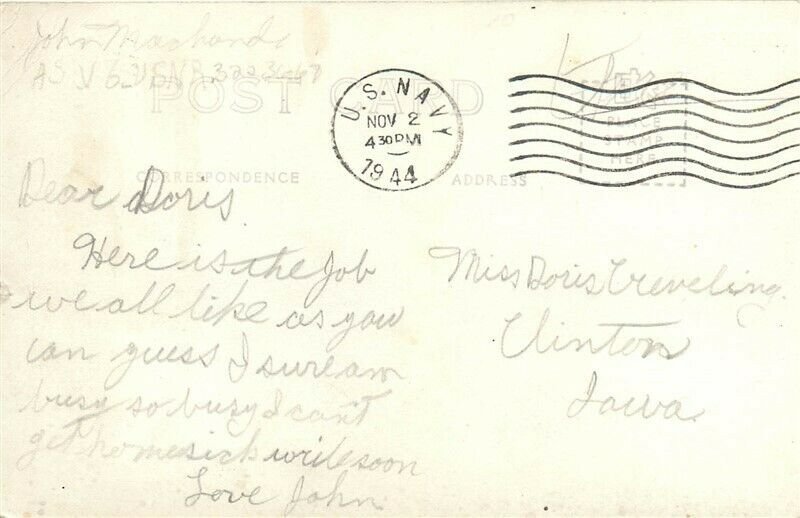 John
POST CARD
U.S. NAVY
NOV 2
4 30 PM
1944
Free
PLACE
STAMP
HERE
CORRESPONDENCE
ADDRESS
Dear Doris
Here is the Job
we all like as you
can guess I sure am
busy so busy I can't
get homesick write soon
Love John
Miss Doris Creveling.
Clinton
Iowa.